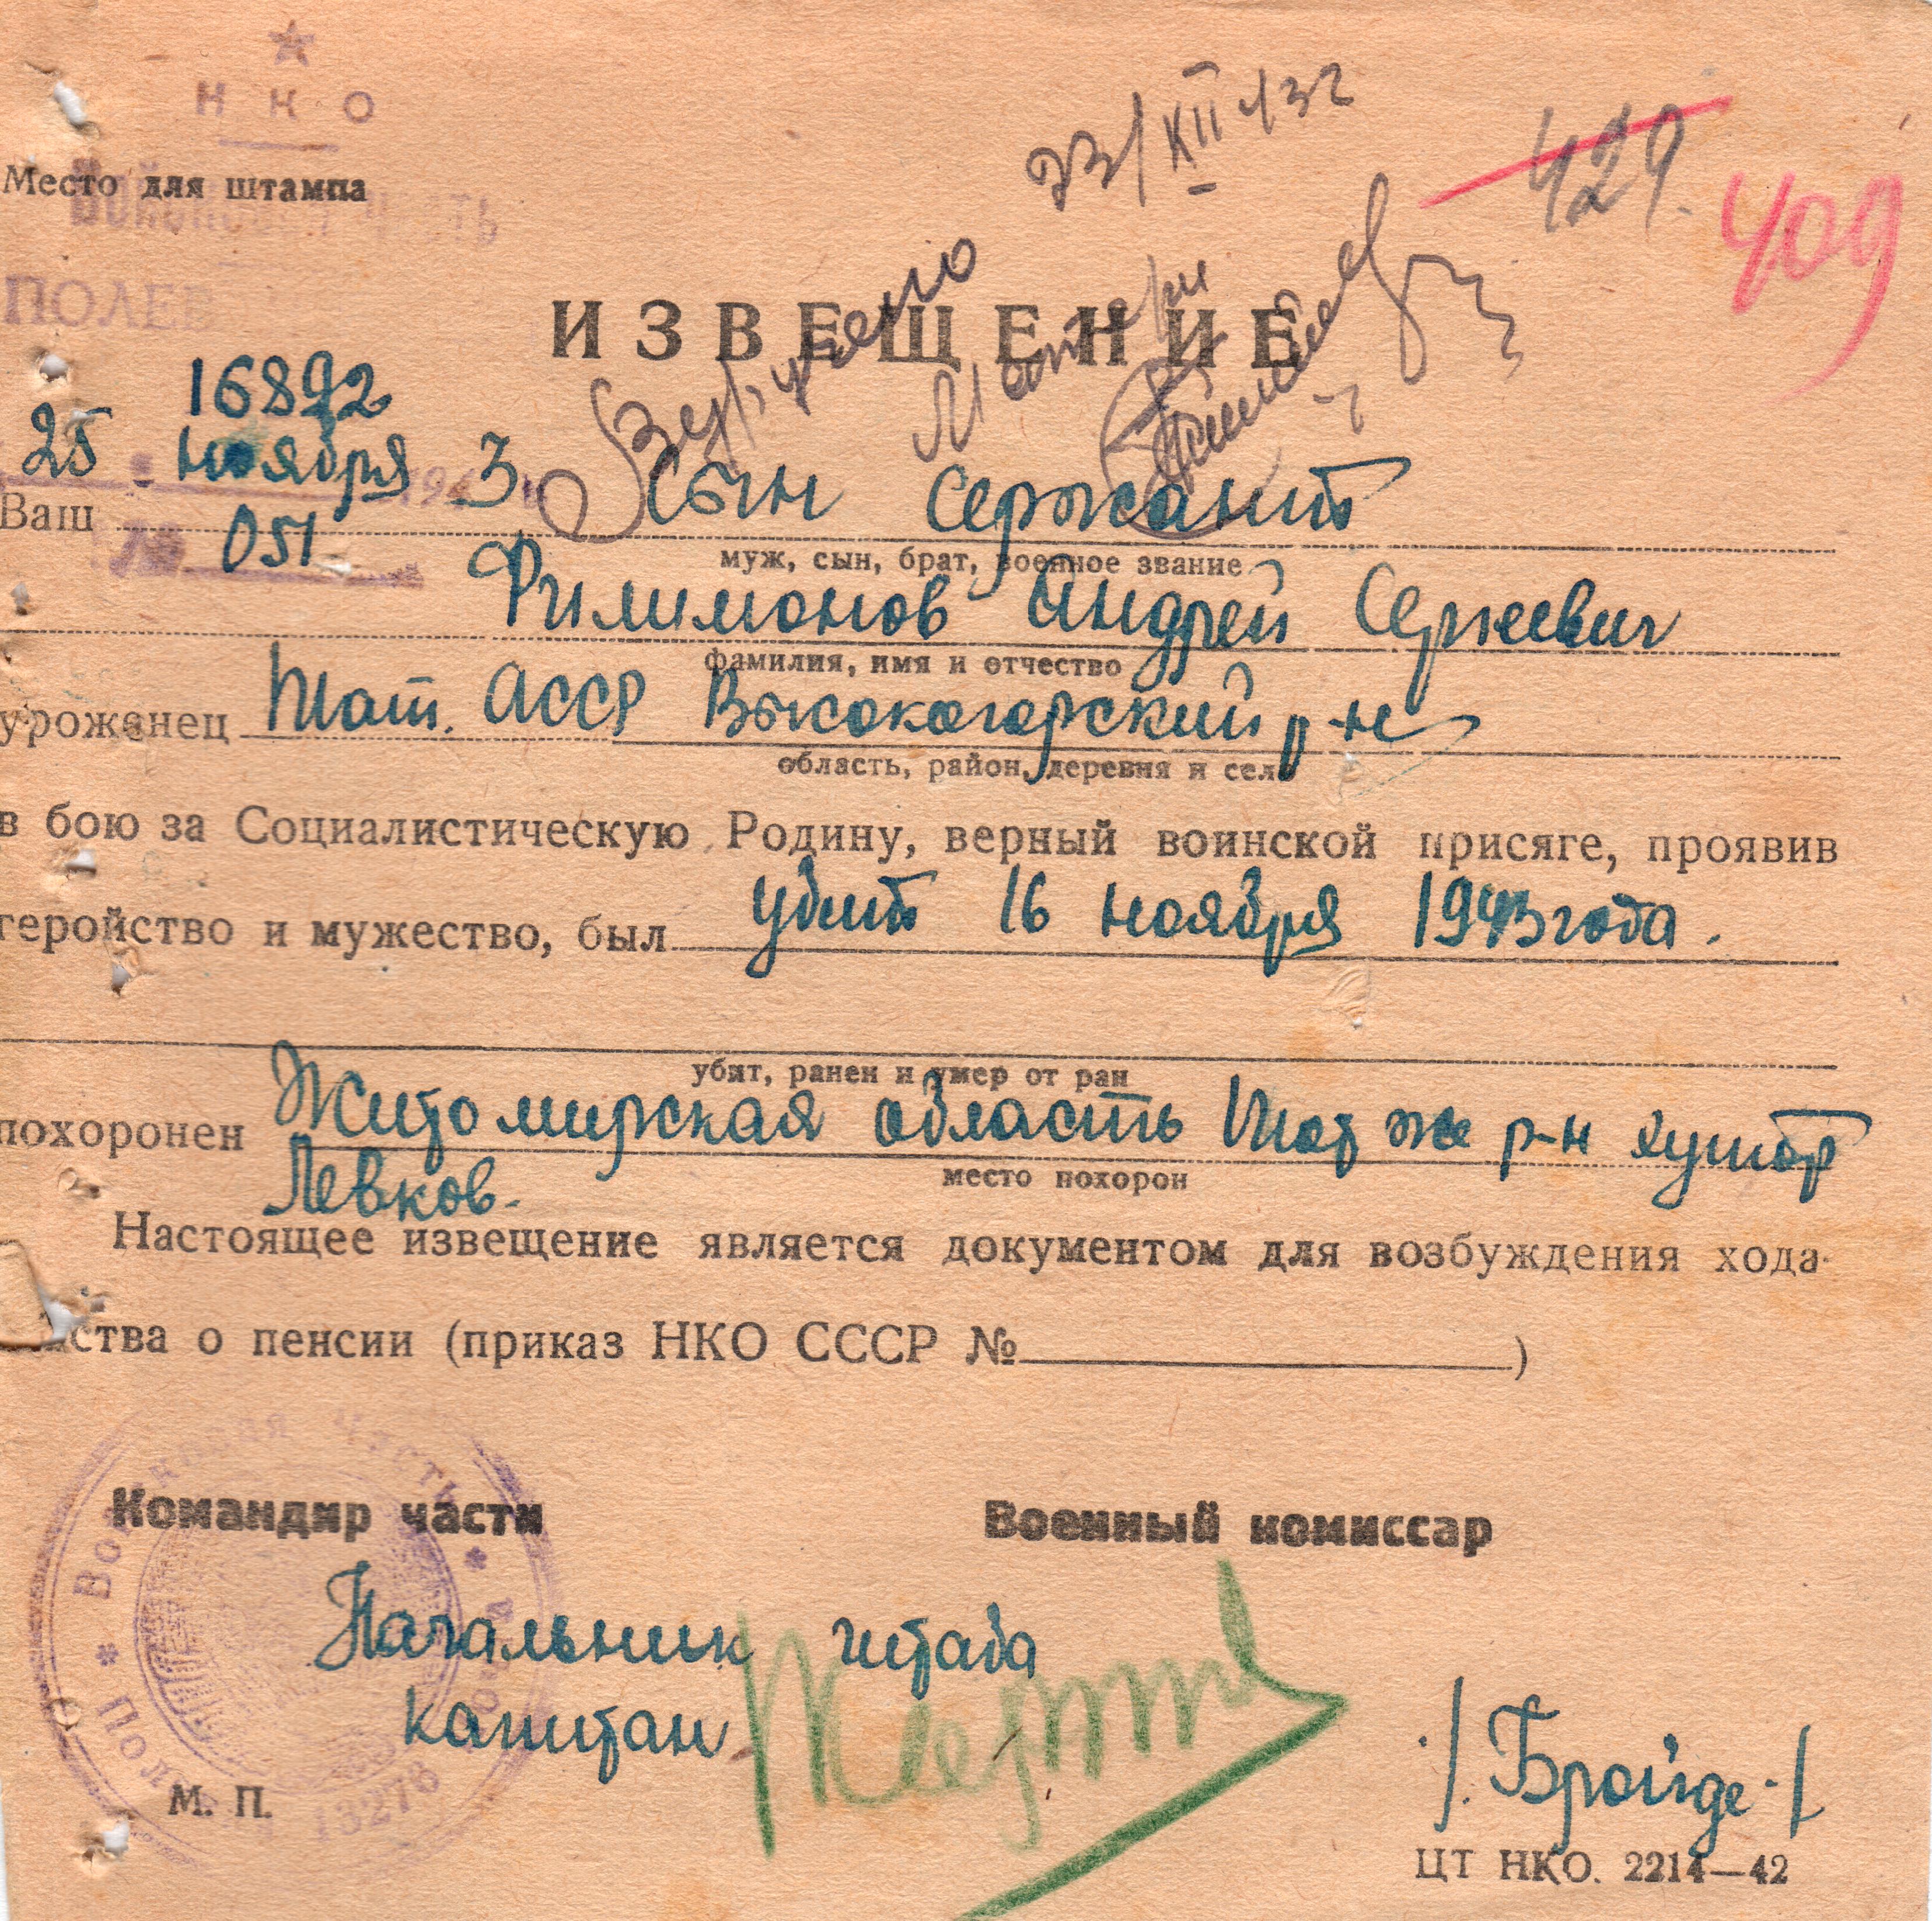 НКО
Место для штампа
Войсковая часть
ПОЛЕВ
23/XII 43г
429.
409
ИЗВЕЩЕНИЕ
Вручено Матери
16892
25 ноября 194 3
051
Ваш сын сержант
муж, сын, брат, военное звание
Филимонов Андрей Сергеевич
фамилия, имя и отчество
уроженец Тат. АССР Высокогорский р-н
область, район, деревня и село
в бою за Социалистическую Родину, верный воинской присяге, проявив
геройство и мужество, был убит 16 ноября 1943 года.
убит, ранен и умер от ран
похоронен Житомирская область Тот же р-н хутор
место похорон
Левков.
Настоящее извещение является документом для возбуждения хода-
йства о пенсии (приказ НКО СССР № )
Войсковая часть * Полевая почта * 13276
Командир части Военный комиссар
Начальник штаба
капитан /. Бройде ./
М. П.
ЦТ НКО. 2214—42